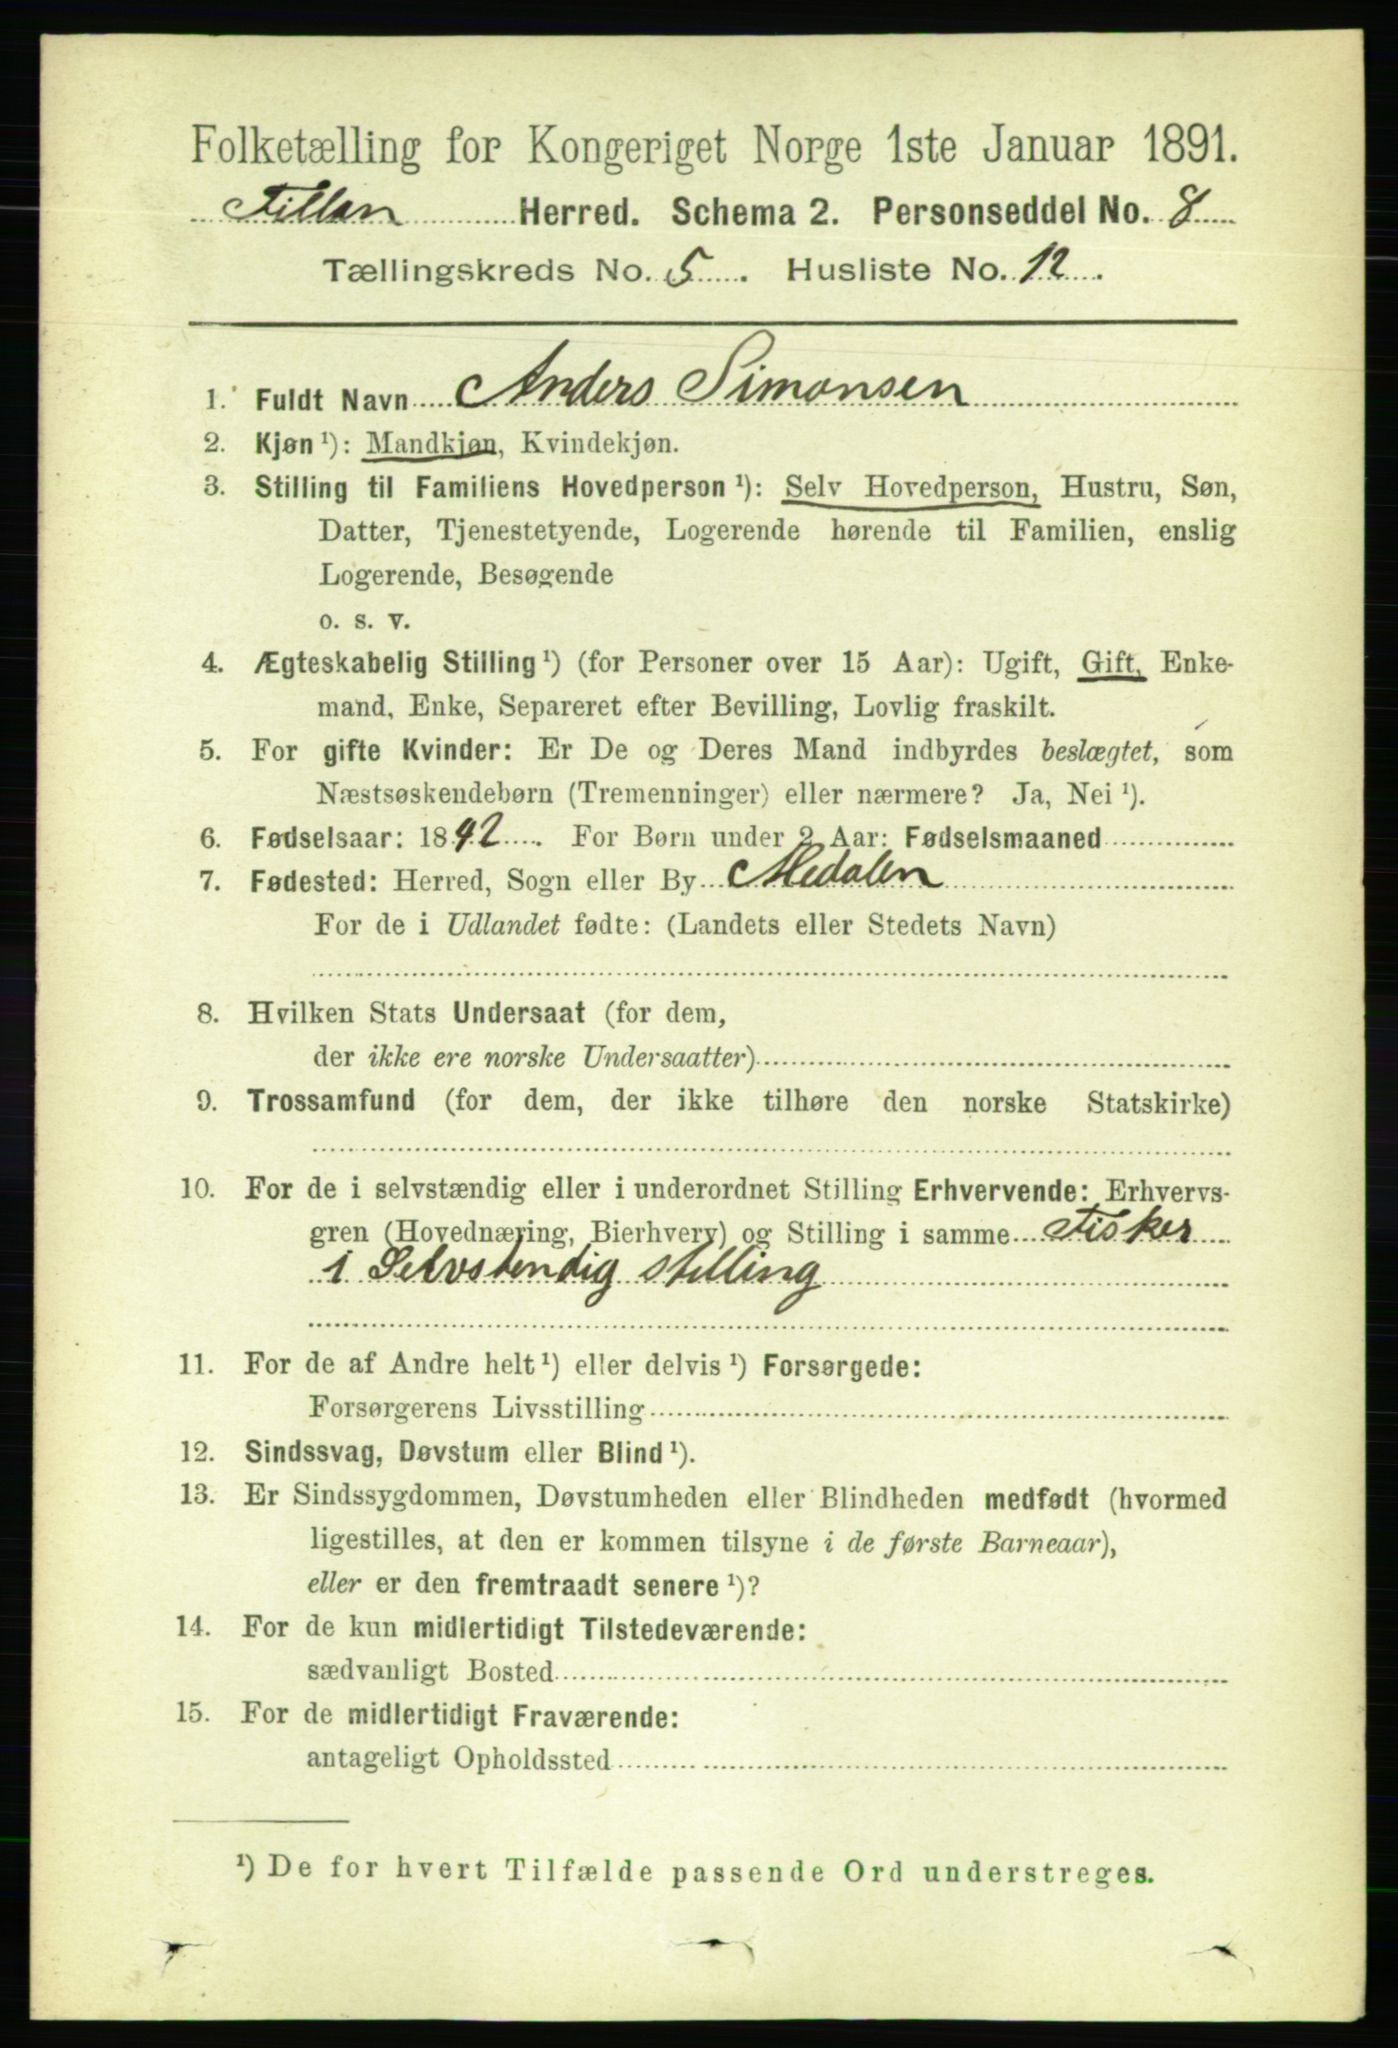 Folketælling for Kongeriget Norge 1ste Januar 1891.
Fillan Herred. Schema 2. Personseddel No. 8
Tællingskreds No. 5. Husliste No. 12.
1. Fuldt Navn Anders Simonsen
2. Kjøn ¹): Mandkjøn, Kvindekjøn.
3. Stilling til Familiens Hovedperson ¹): Selv Hovedperson, Hustru, Søn,
Datter, Tjenestetyende, Logerende hørende til Familien, enslig
Logerende, Besøgende
o. s. v.
4. Ægteskabelig Stilling ¹) (for Personer over 15 Aar): Ugift, Gift, Enke-
mand, Enke, Separeret efter Bevilling, Lovlig fraskilt.
5. For gifte Kvinder: Er De og Deres Mand indbyrdes beslægtet, som
Næstsøskendebørn (Tremenninger) eller nærmere? Ja, Nei ¹).
6. Fødselsaar: 1842. For Børn under 2 Aar: Fødselsmaaned
7. Fødested: Herred, Sogn eller By Medalen
For de i Udlandet fødte: (Landets eller Stedets Navn)
8. Hvilken Stats Undersaat (for dem,
der ikke ere norske Undersaatter)
9. Trossamfund (for dem, der ikke tilhøre den norske Statskirke)
10. For de i selvstændig eller i underordnet Stilling Erhvervende: Erhvervs-
gren (Hovednæring, Bierhverv) og Stilling i samme Fisker
i Selvstendig stilling
11. For de af Andre helt ¹) eller delvis ¹) Forsørgede:
Forsørgerens Livsstilling
12. Sindssvag, Døvstum eller Blind ¹).
13. Er Sindssygdommen, Døvstumheden eller Blindheden medfødt (hvormed
ligestilles, at den er kommen tilsyne i de første Barneaar),
eller er den fremtraadt senere ¹)?
14. For de kun midlertidigt Tilstedeværende:
sædvanligt Bosted
15. For de midlertidigt Fraværende:
antageligt Opholdssted
¹) De for hvert Tilfælde passende Ord understreges.